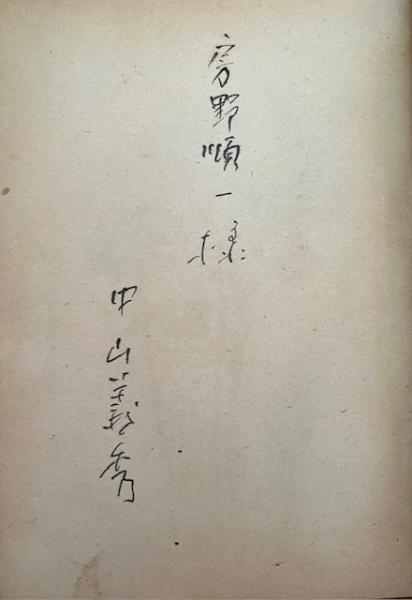 房野順一様
中山義秀